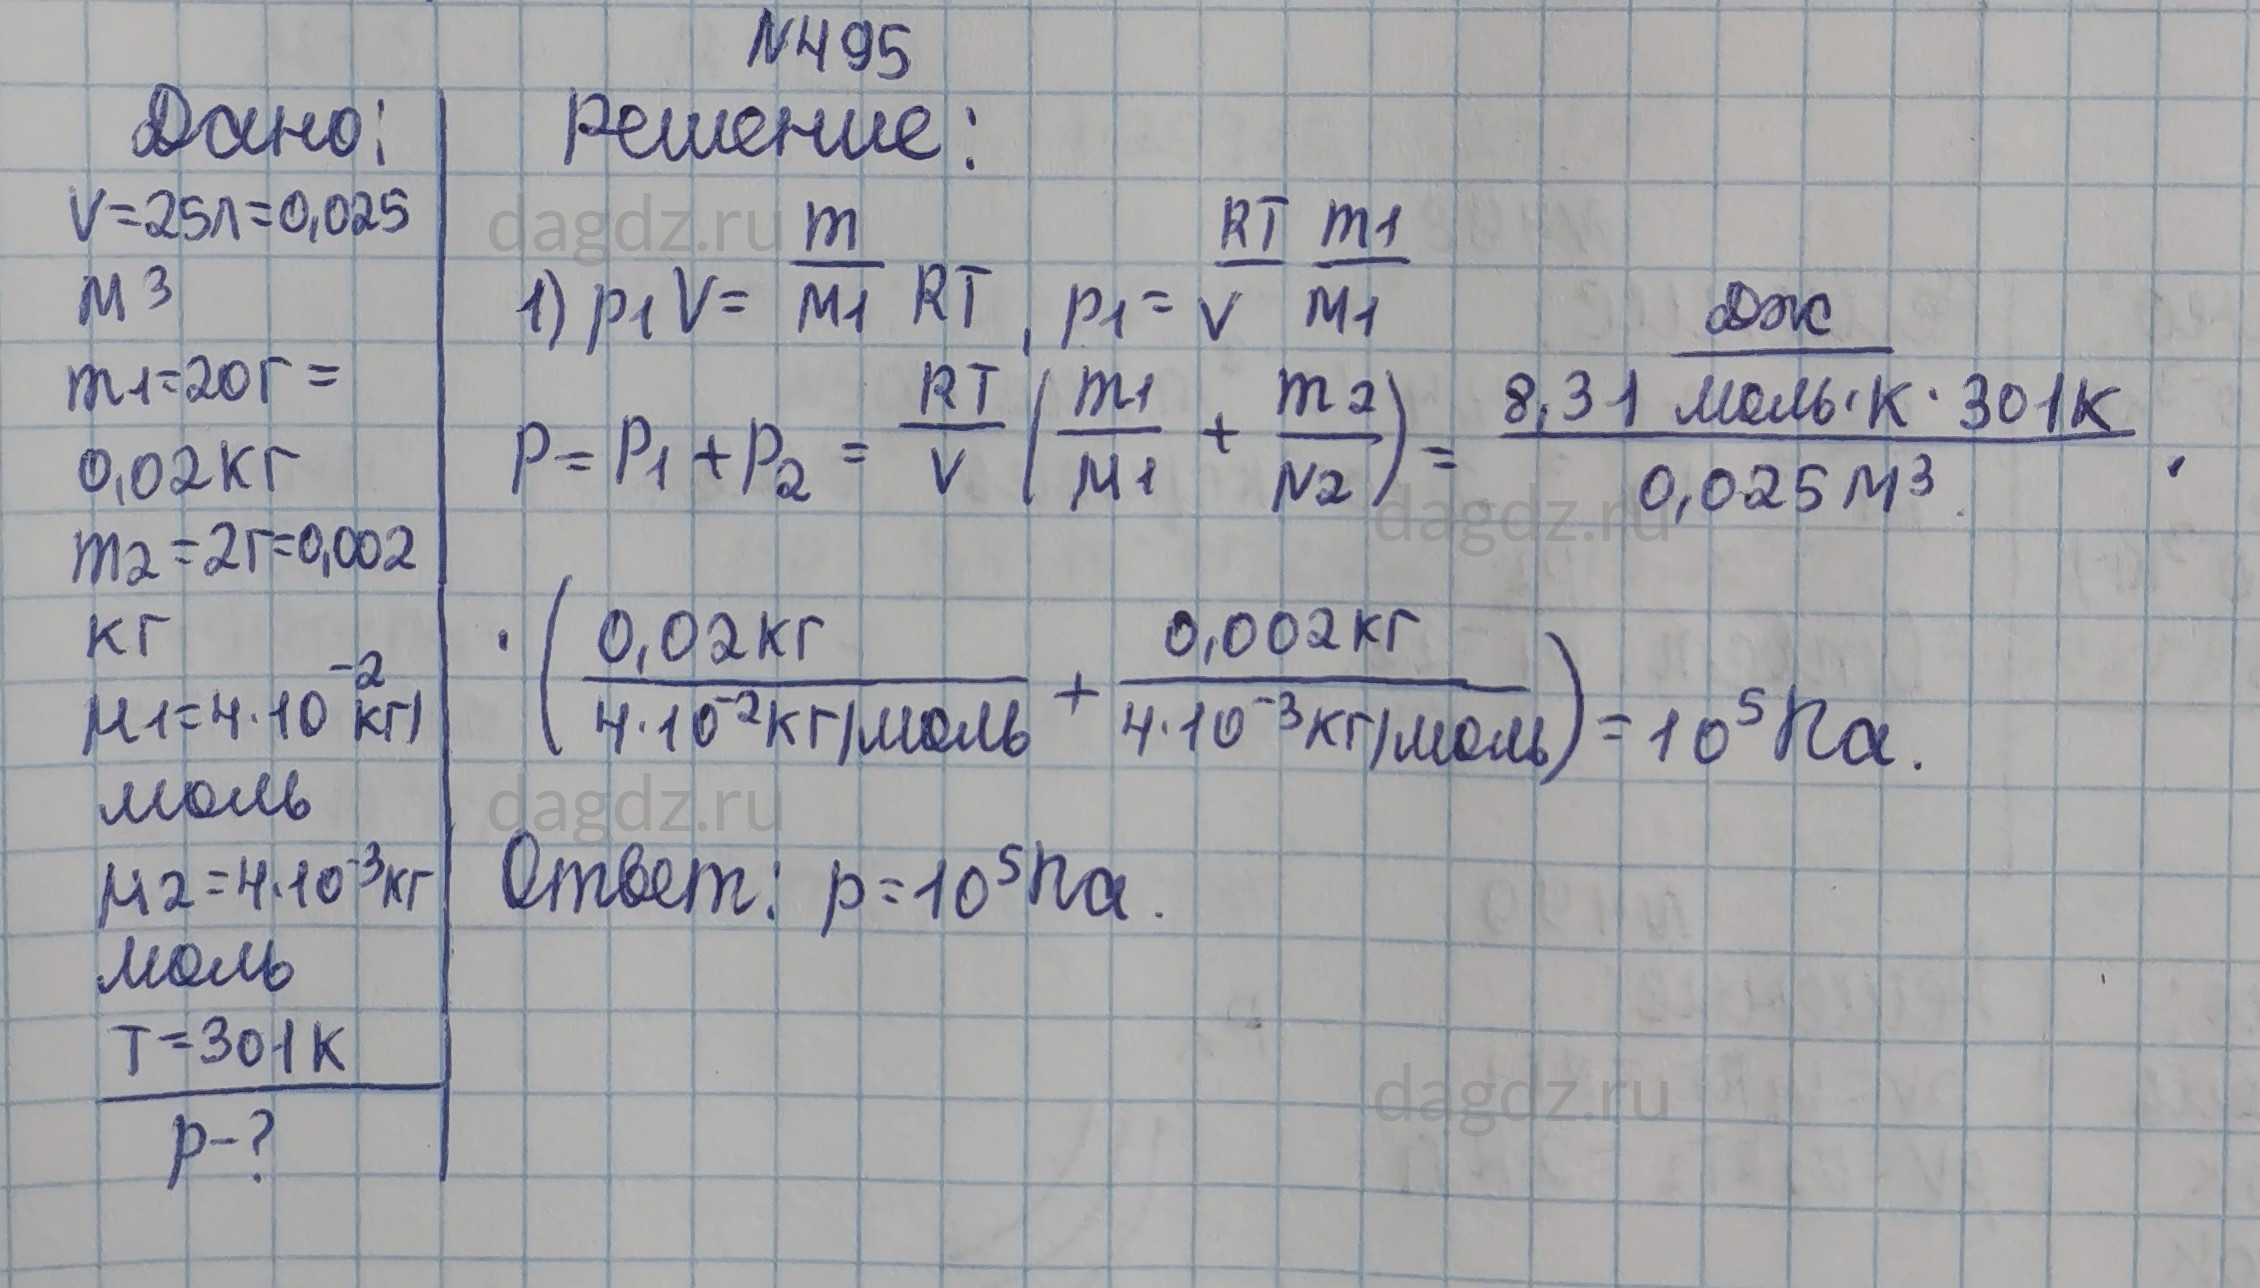 N495
Дано:
V=25л=0,025
м3
m1=20г=
0,02кг
m2=2г=0,002
кг
M1=4·10⁻² кг/
моль
M2=4·10⁻³кг
моль
T=301К
p-?
Решение:
1) p1 V= m/M1 RT, p1= RT/V m1/M1
P=P1+P2 = RT/V (m1/M1 + m2/N2) = 8,31 Дж/моль·К · 301К / 0,025м3 ·
· (0,02кг / 4·10⁻²кг/моль + 0,002кг / 4·10⁻³кг/моль) = 10⁵Па.
Ответ: p=10⁵Па.
dagdz.ru
dagdz.ru
dagdz.ru
dagdz.ru